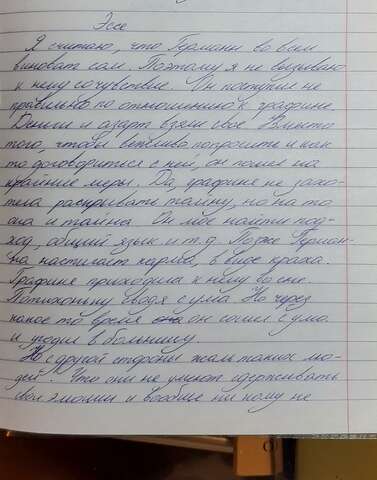 Эссе
Я считаю, что Германн во всем
виноват сам. Поэтому я не вызываю
к нему сочувствие. Он поступил не
правильно по отношению к графине.
Деньги и азарт взяли свое. Вместо
того, чтобы вежливо попросить и как
то договориться с ней, он пошел на
крайние меры. Да, графиня не захо-
тела раскрывать тайну, но на то
она и тайна. Он мог найти под-
ход, общий язык и т.д. Позже Герман-
на настигает карма, в виде краха.
Графиня приходила к нему во сне.
Потихоньку сводя с ума. Но через
какое то время он сошел с ума
и угодил в больницу.
Но с другой стороны жаль таких лю-
дей. Что они не умеют сдерживать
свои эмоции и вообще ни кому не